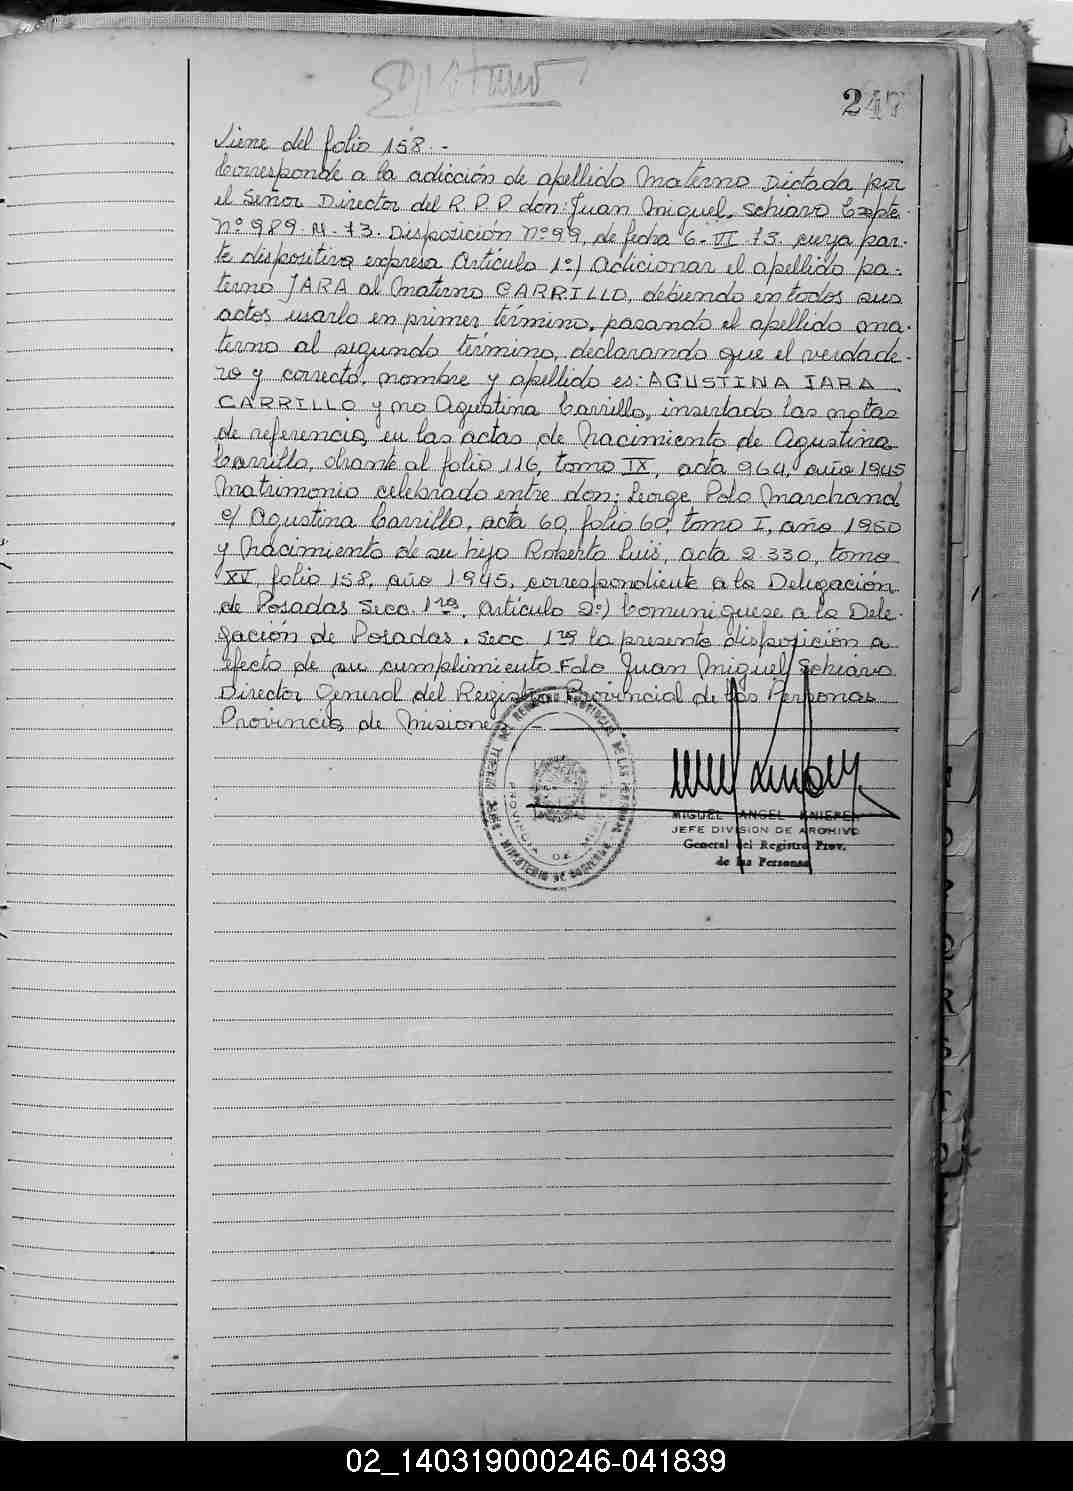 247
Viene del folio 158.-
Corresponde a la adicción de apellido Materno Dictada por
el Señor Director del R.P.P. don: Juan Miguel, Schiavo Expte.
Nº 989-M-73. Disposición Nº 99, de fecha 6-VI-73. cuya par-
te dispositiva expresa Artículo 1º) Adicionar el apellido pa-
terno JARA al Materno CARRILLO, debiendo en todos sus
actos usarlo en primer término, pasando el apellido ma-
terno al segundo término, declarando que el verdade-
ro y correcto, nombre y apellido es: AGUSTINA JARA
CARRILLO y no Agustina Carrillo, insertado las notas
de referencia, en las actas de Nacimiento de Agustina
Carrillo, obrante al folio 116, tomo IX, acta 964, año 1945
Matrimonio celebrado entre don: Jorge Polo Marchand
c/ Agustina Carrillo, acta 60, folio 60, tomo I, año 1960
y Nacimiento de su hijo Roberto Luis, acta 2.330, tomo
XV, folio 158, año 1.945, correspondiente a la Delegación
de Posadas Secc. 1ra, artículo 2º) Comuniquese a la Dele-
gación de Posadas. Secc 1ra la presente disposición a
efecto de su cumplimiento Fdo Juan Miguel Schiavo
Director General del Registro Provincial de las Personas
Provincia, de Misiones
DEL REGISTRO PROVINCIAL DE LAS PERSONAS
PROVINCIA DE MISIONES
MINISTERIO DE GOBIERNO
MIGUEL ANGEL KNIEFER
JEFE DIVISION DE ARCHIVO
General del Registro Prov.
de las Personas
02_140319000246-041839